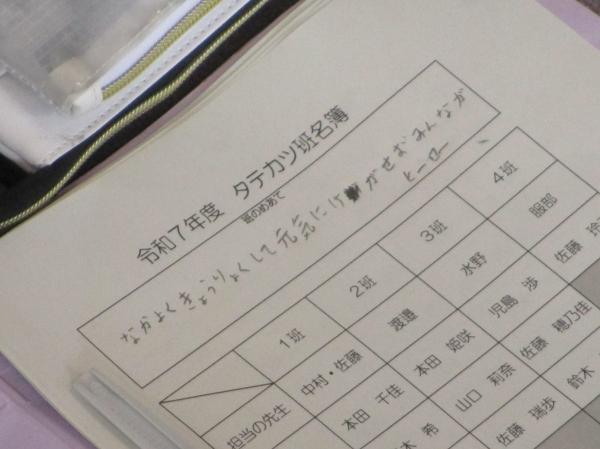 令和7年度 タテカツ班名簿
班のめあて
なかよくきょうりょくして元気にけががせおみんなが
ヒーロー
1班 2班 3班 4班
担当の先生 中村・佐藤 渡邉 水野 服部
本田 千佳 本田 姫咲 児島 渉 佐藤
希 山口 莉奈 佐藤 穂乃佳
佐藤 瑞歩 鈴木